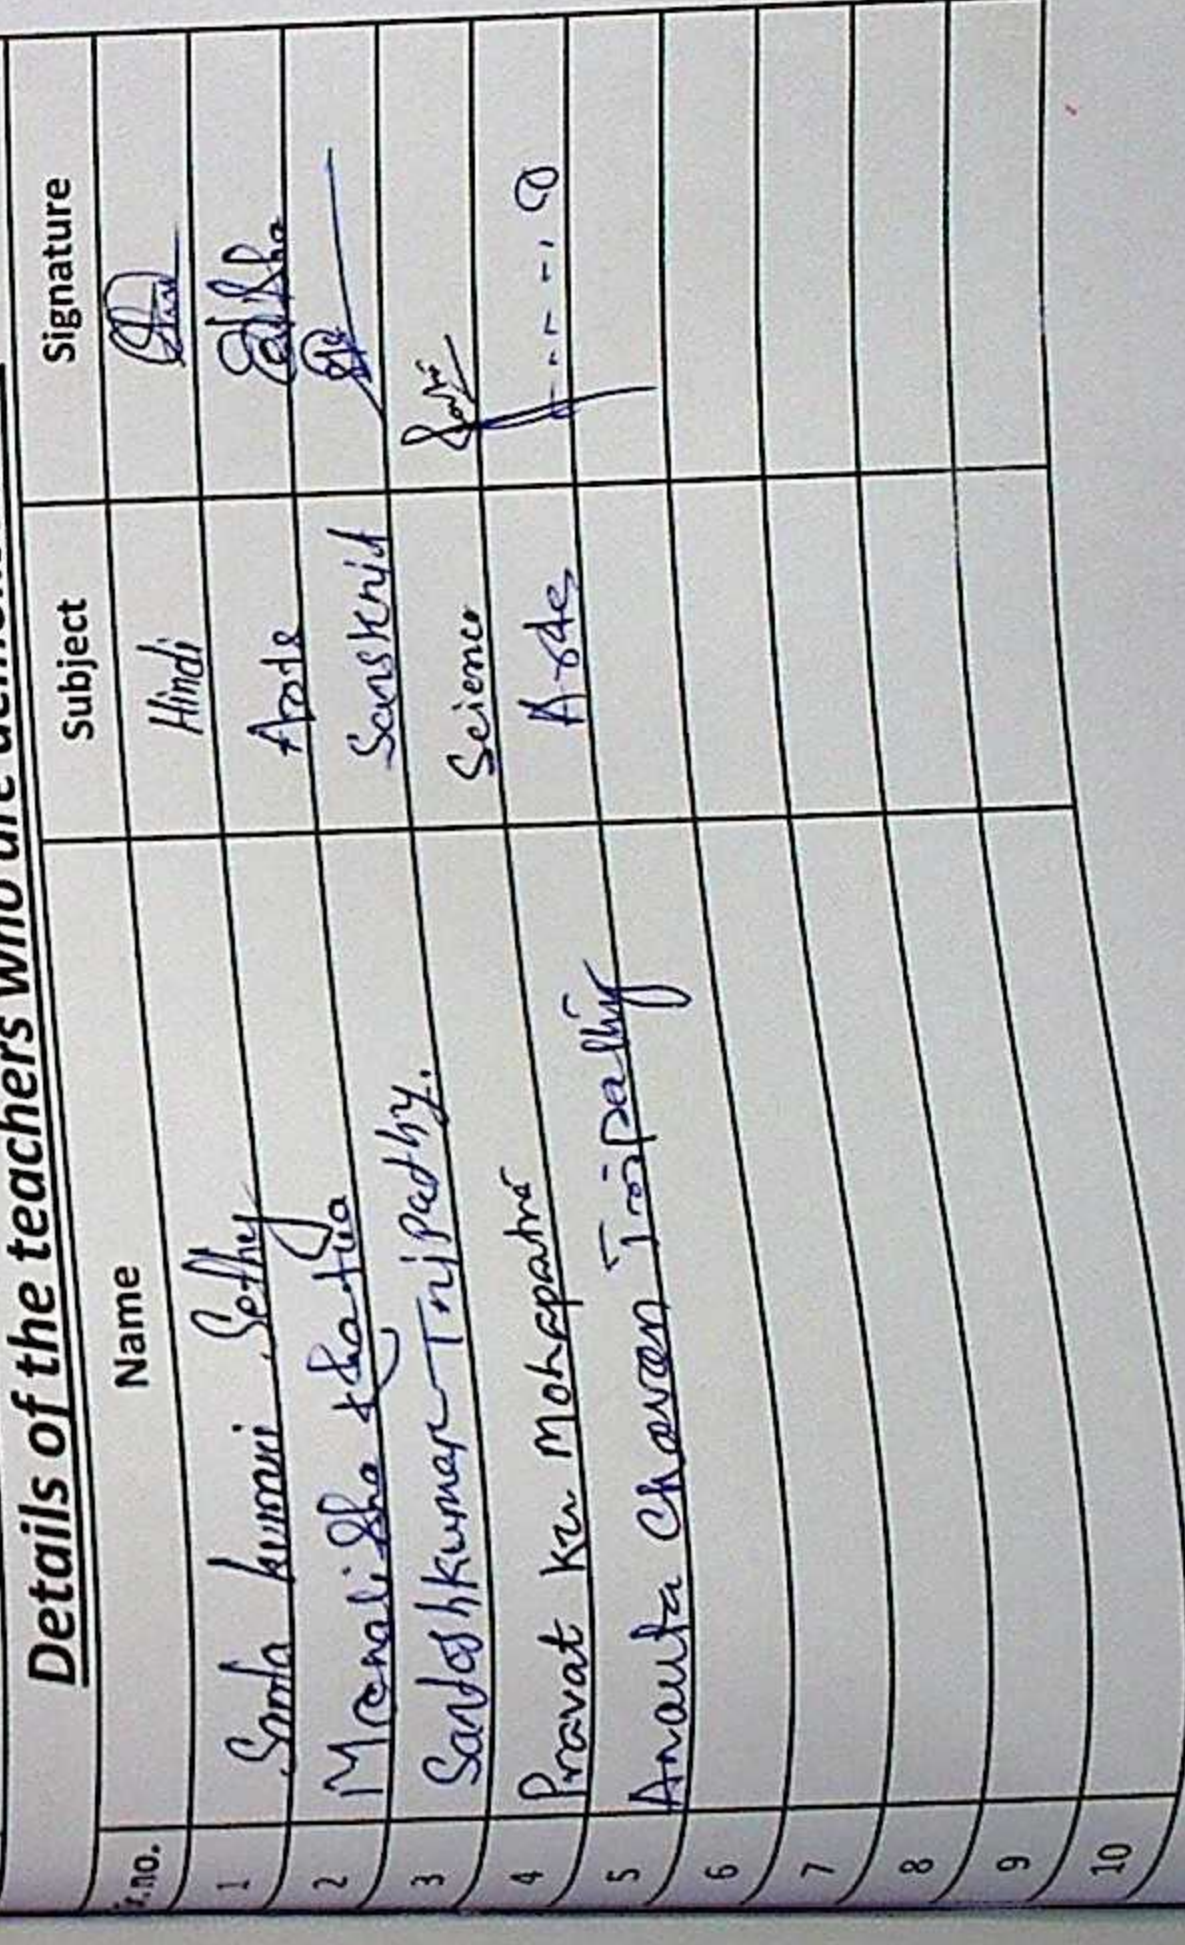 Details of the teachers who are
Sr.no. Name Subject Signature
1 Kumari Sethy Hindi
2 Monalisha Khatua Arts
3 Santosh kumar Tripathy. Sanskrit
4 Pravat Kr Mohapatra Science
5 Ananta Charan Tripathy Arts
6
7
8
9
10